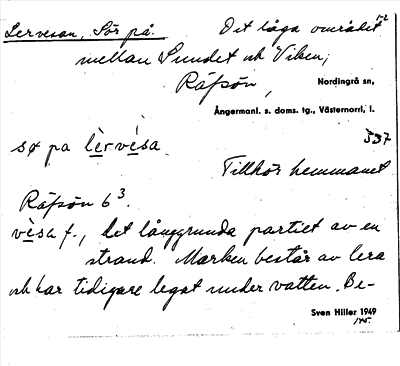 Lervesan, Sör på. Det låga området
mellan Sundet och Viken,
Räfsön, Nordingrå sn,
Ångermanl. s. doms. tg., Västernorrl. l.
sö pa lèrvèsa. 537
Tillhör hemmanet
Räfsön 6³.
vèsa f., det långgrunda partiet av en
strand. Marken består av lera
och har tidigare legat under vatten. Be-
Sven Hiller 1949